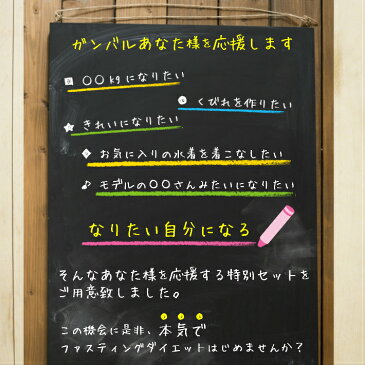 ガンバルあなた様を応援します
〇〇kgになりたい
くびれを作りたい
きれいになりたい
お気に入りの水着を着こなしたい
♪ モデルの〇〇さんみたいになりたい
なりたい自分になる
そんなあなた様を応援する特別セットを
ご用意致しました。
この機会に是非、本気で
ファスティングダイエットはじめませんか?